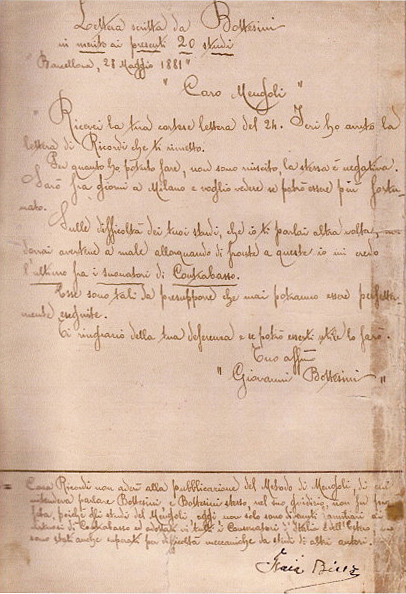 Lettera scritta da Bottesini
in merito ai presenti 20 studi
"Barcellona, 28 Maggio 1881"
"Caro Mengoli"
"Ricevei la tua cortese lettera del 24. Ieri ho avuto la
lettera di Ricordi che ti rimetto.
Per quanto ho potuto fare, non sono riuscito, la stessa è negativa.
Sarò fra giorni a Milano e voglio vedere se potrò essere più fortu-
nato.
Sulle difficoltà dei tuoi studi, che io ti parlai altra volta, non
dovrai avertene a male allorquando di fronte a queste io mi credo
l'ultimo fra i suonatori di Contrabasso.
Esse sono tali da presupporre che mai potranno essere perfetta-
mente eseguite.
Ti ringrazio della tua deferenza e se potrò esserti utile lo farò.
Tuo affmo
"Giovanni Bottesini"
= Casa Ricordi non aderì alla pubblicazione del Metodo di Mengoli, di cui
intendeva parlare Bottesini e Bottesini stesso, nel suo giudizio, non fu pro-
feta, poichè gli studi del Mengoli, oggi non solo sono eseguiti
di Contrabasso ed adottati in tutti i Conservatori d'Italia e dell'Estero, ma
sono stati anche superati per difficoltà meccaniche da studi di altri autori.
Isaia Billè